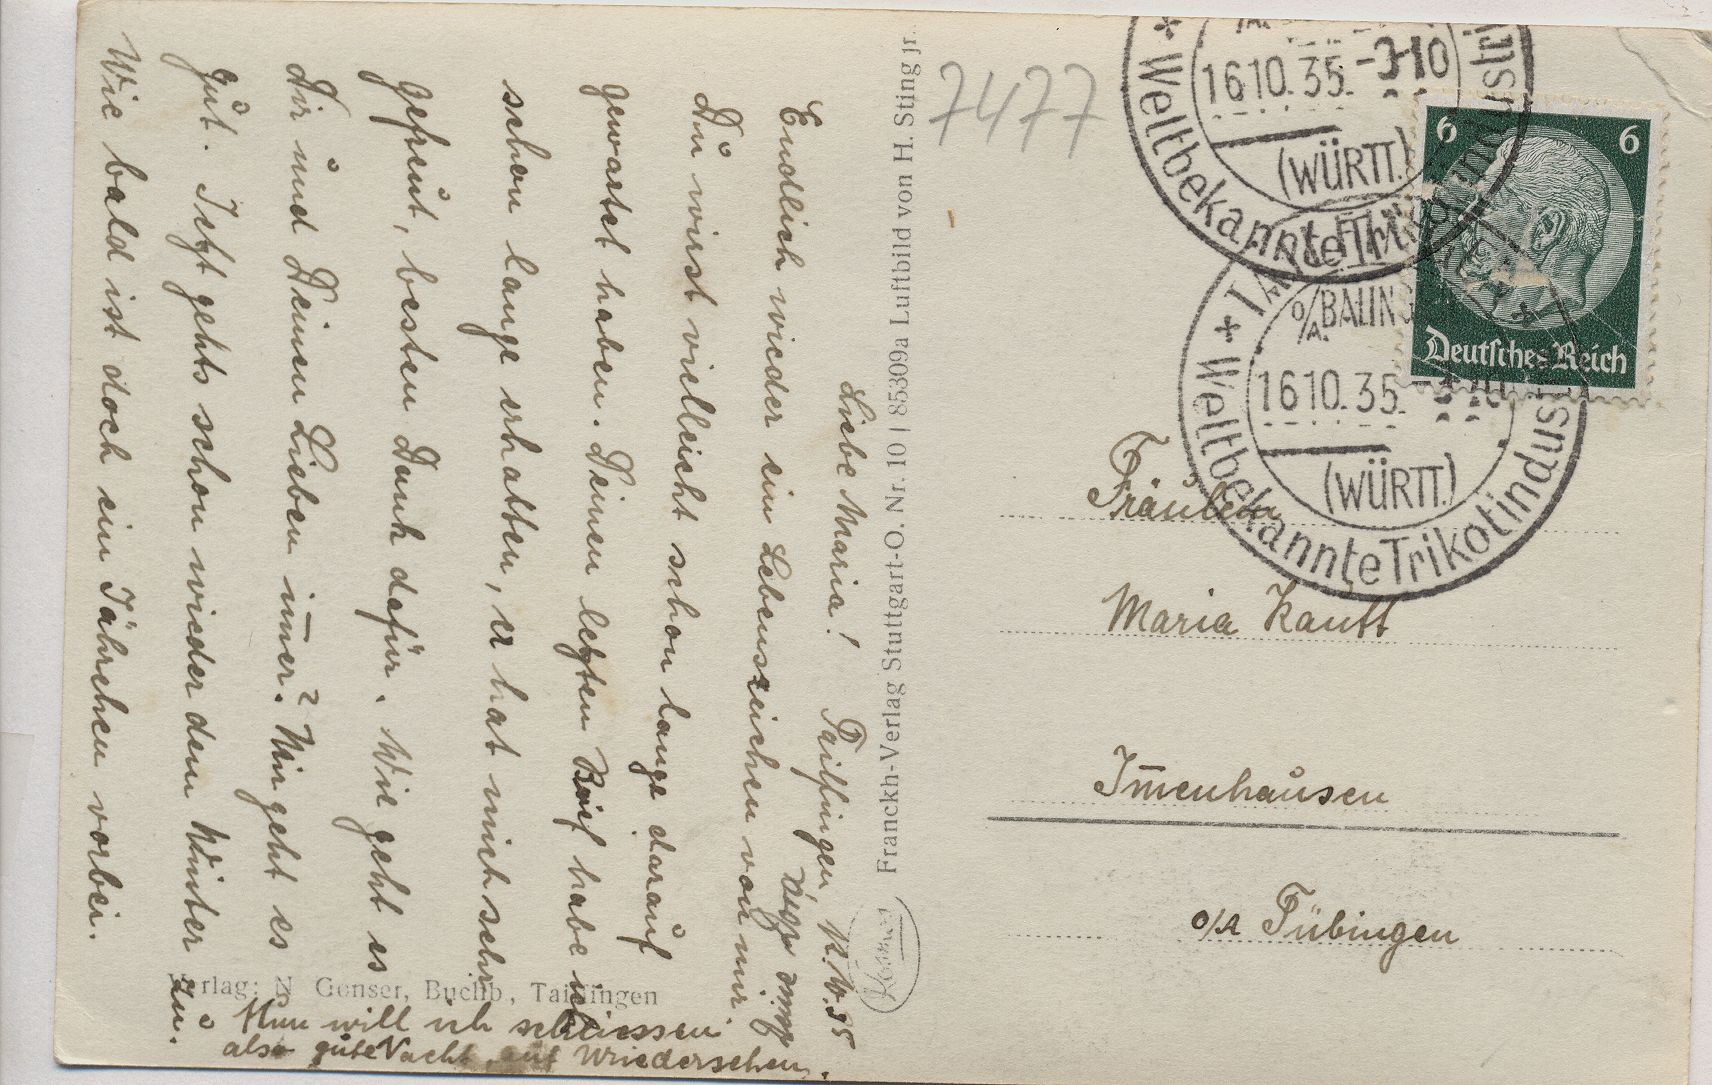 Liebe Maria! Tailfingen
Endlich wieder ein Lebenszeichen von mir
Dŭ wirst vielleicht schon lange daraŭf
gewartet haben. Deinen letzten Brief habe ich
schon lange erhalten, er hat mich sehr
gefreŭt, besten Dank dafür. Wie geht es
Dir ŭnd Deinen Lieben im̅er? Mir geht es
gŭt. Jetzt gehts schon wieder dem Winter
zŭ.
Wie bald ist doch ein Jährchen vorbei.
Nŭn will ich schliessen
also gŭte Nacht, aŭf Wiedersehen.
Verlag: N Gonser, Buchb., Tailfingen
Kosmos
Franckh-Verlag Stuttgart-O. Nr. 10 | 85309a Luftbild von H. Sting jr.
7477
16.10.35.-9-10
(WÜRTT.)
✢ Weltbekannte Trikotindustr
6 6
Deutsches Reich
O/A. BALING
16.10.35.
(WÜRTT.)
✢ Weltbekannte Trikotindus
Fräŭlein
Maria Kautt
Im̅enhaŭsen
o/A Tübingen